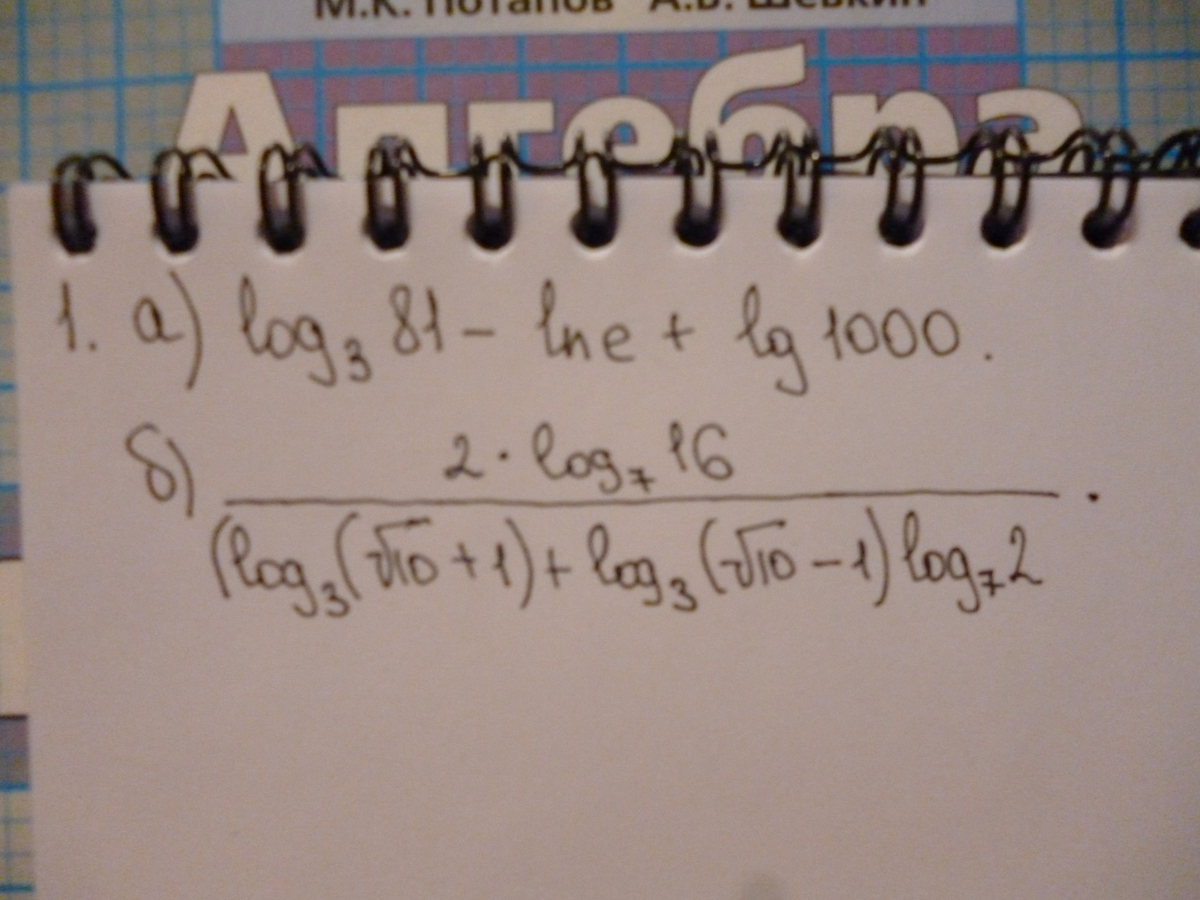 М.К. Потапов А.В. Шевкин
Алгебра
1. а) log₃ 81 - ln e + lg 1000.
б) 2 · log₇ 16
(log₃(√10 + 1) + log₃(√10 - 1) log₇ 2 .